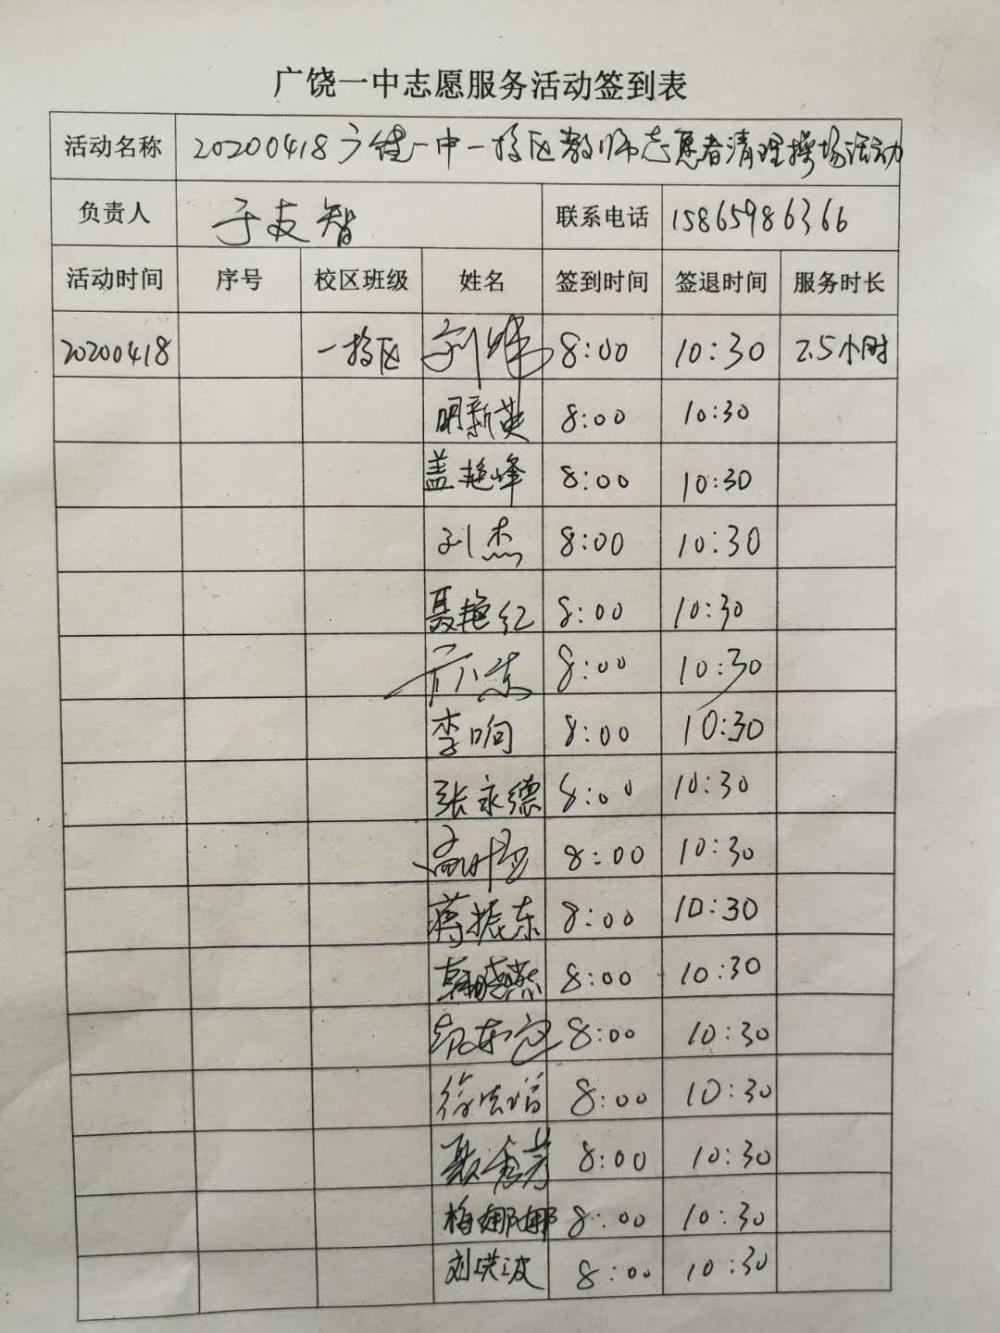 广饶一中志愿服务活动签到表
活动名称 20200418广饶一中一校区教师志愿者清理操场活动
负责人 于友智 联系电话 15865986366
活动时间 序号 校区班级 姓名 签到时间 签退时间 服务时长
20200418 一校区 刘伟 8:00 10:30 2.5小时
明新英 8:00 10:30
盖艳峰 8:00 10:30
刘杰 8:00 10:30
聂艳红 8:00 10:30
8:00 10:30
李响 8:00 10:30
张永德 8:00 10:30
8:00 10:30
蒋振东 8:00 10:30
韩晓燕 8:00 10:30
8:00 10:30
8:00 10:30
聂秀芳 8:00 10:30
梅娜娜 8:00 10:30
刘洪波 8:00 10:30